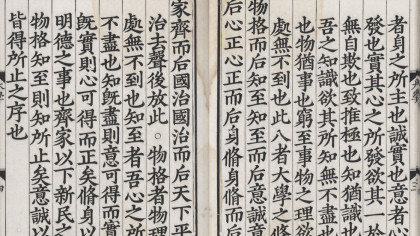 者身之所主也誠實也意者心
發也實其心之所發欲其一於
無自欺也致推極也知猶識也
吾之知識欲其所知無不盡也
也物猶事也窮至事物之理欲
處無不到也此八者大學之條
物格而后知至知至而后意誠意
后心正心正而后身脩身脩而
家齊而后國治國治而后天下平
治去聲後放此○物格者物理
處無不到也知至者吾心之所
不盡也知既盡則意可得而實
既實則心可得而正矣脩身以
明德之事也齊家以下新民之
物格知至則知所止矣意誠以
皆得所止之序也